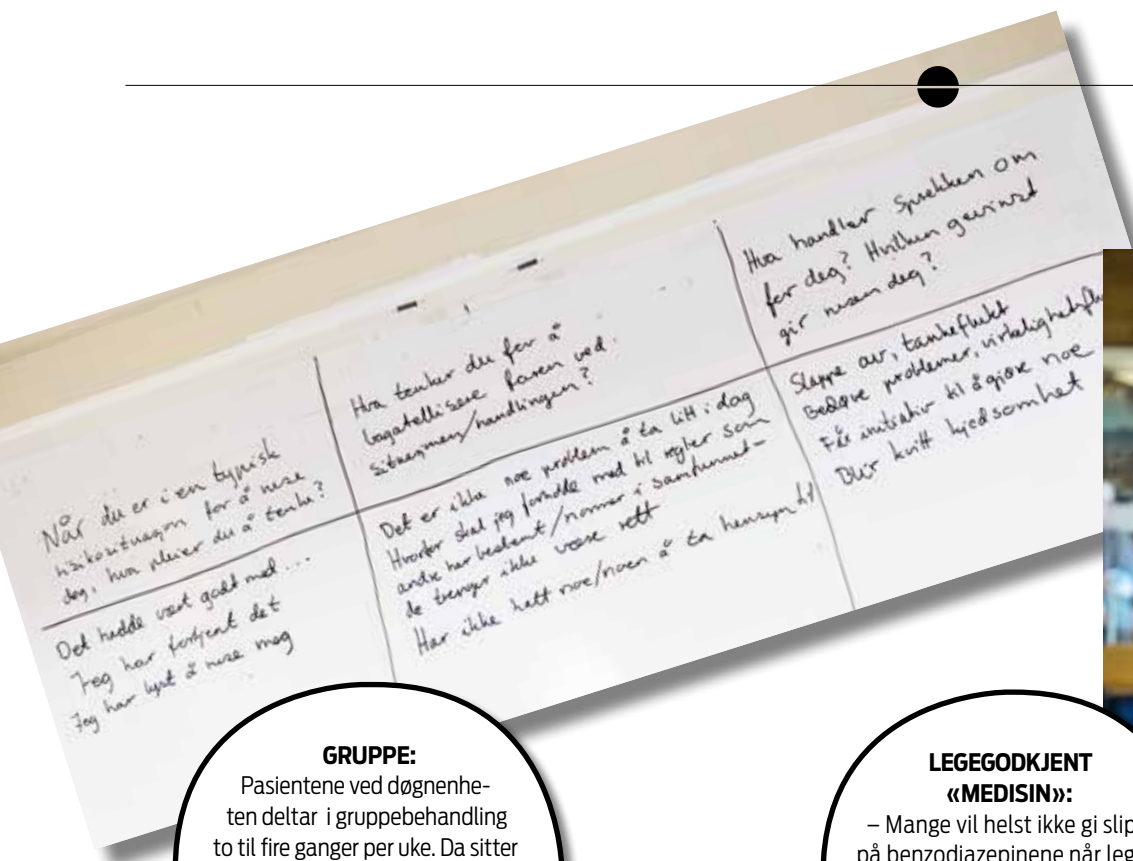 Når du er i en typisk
risikosituasjon for å ruse
deg, hva pleier du å tenke?
Det hadde vært godt med...
Jeg har fortjent det
Jeg har lyst å ruse meg
Hva tenker du for å
bagatellisere faren ved
situasjonen/handlingen?
Det er ikke noe problem å ta litt i dag
Hvorfor skal jeg forholde meg til regler som
andre har bestemt/normer i samfunnet-
de trenger ikke være rett
Har ikke hatt noe/noen å ta hensyn til
Hva handler sprekken om
for deg? Hvilken gevinst
gir rusen deg?
Slappe av, tankeflukt
Bedøve problemer,
Får initiativ til å gjøre noe
Blir kvitt kjedsomhet
GRUPPE:
Pasientene ved døgnenhe-
ten deltar i gruppebehandling
to til fire ganger per uke. Da sitter
LEGEGODKJENT
«MEDISIN»:
– Mange vil helst ikke gi slip
på benzodiazepinene når leg